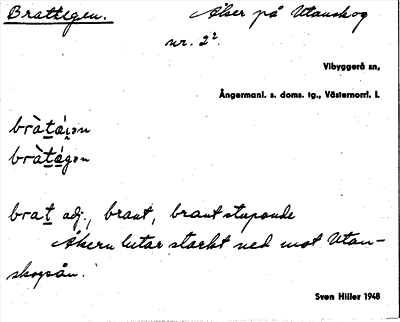 Brattegen.
Åker på Utanskog
nr. 2².
Vibyggerå sn,
Ångermanl. s. doms. tg., Västernorrl. l.
bràtá
bràtágən
brat adj., brant, brant stupande
Åkern lutar starkt ned mot Utan-
skogsån.
Sven Hiller 1948